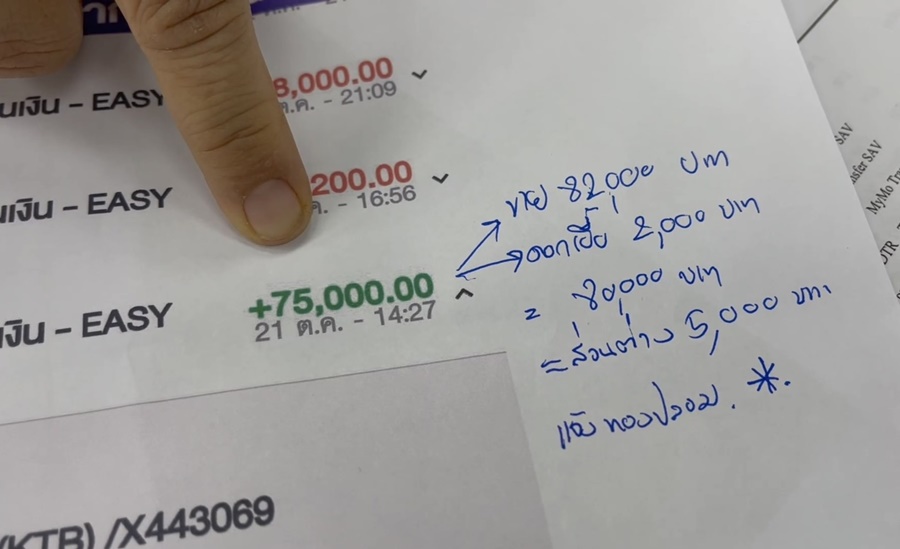 นเงิน – EASY
8,000.00
ต.ค. - 21:09
นเงิน – EASY
200.00
ค. - 16:56
งิน – EASY
+75,000.00
21 ต.ค. - 14:27
(KTB) /X443069
ขาย 82,000 บาท
ดอกเบี้ย 2,000 บาท
= 80,000 บาท
= ส่วนต่าง 5,000 บาท
แจ้งทองปลอม. *.
SAV
nsfer SAV
MyMo Tra
DTR